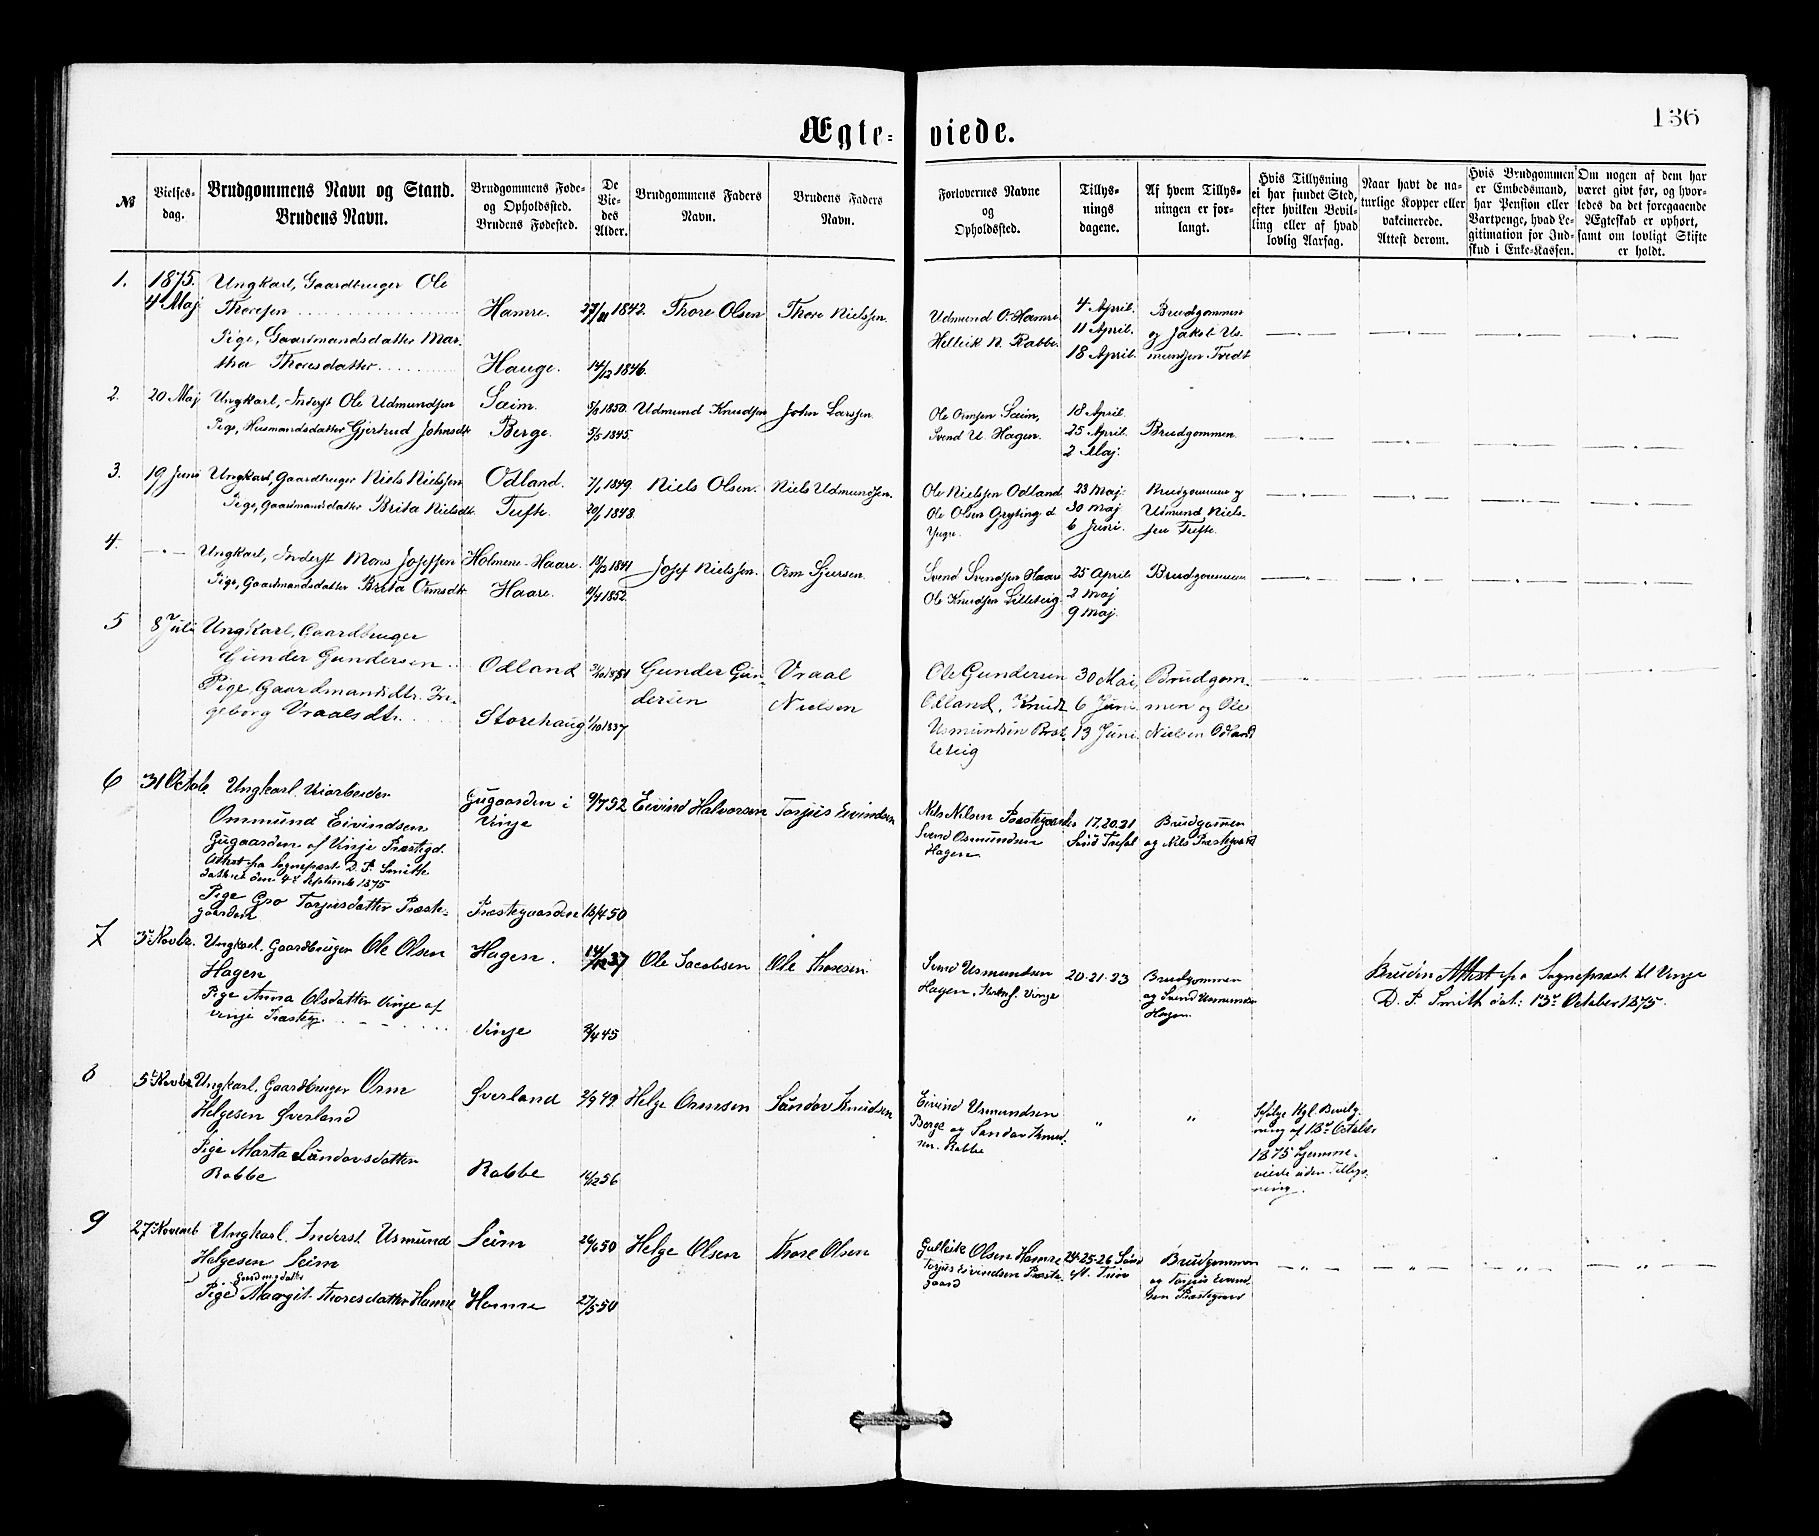 Ægte-viede.
136
№
Vielses-
dag.
Brudgommens Navn og Stand.
Brudens Navn.
Brudgommens Føde-
og Opholdssted.
Brudens Fødested.
De
Vie-
des
Alder.
Brudgommens Faders
Navn.
Brudens Faders
Navn.
Forlovernes Navne
og
Opholdssted.
Tillys-
nings
dagene.
Af hvem Tillys-
ningen er for-
langt.
Hvis Tillysning
ei har fundet Sted,
efter hvilken Bevil-
ling eller af hvad
lovlig Aarsag.
Naar havt de na-
turlige Kopper eller
vakcinerede.
Attest derom.
Hvis Brudgommen
er Embedsmand,
har Pension eller
Vartpenge, hvad Le-
gitimation for Ind-
skud i Enke-Kassen.
Om nogen af dem har
været givt før, og hvor-
ledes da det foregaaende
Ægteskab er ophørt,
samt om lovligt Skifte
er holdt.
1.
1875.
4 Maj
Ungkarl, Gaardbruger Ole
Thoresen
Pige, Gaardmandsdatter Mar-
tha Thoresdatter
Hamre.
Hauge.
27/11 1842.
14/12 1846.
Thore Olsen
Thore Nielssen
Udmund O. Hamre
Helleik N. Rabbe.
4 April.
11 April.
18 April.
Brudgommen
og Jakob Us-
mundsen Tvedt
2.
20 Maj
Ungkarl, Inderst Ole Udmundsen
Pige, Husmandsdatter Gjertrud Johnsdt.
Sæim.
Berge.
1850.
5/5 1845.
Udmund Knudsen
John Larssen
Ole Ormsen Sæim,
Svend U. Hagen.
18 April.
25 April.
2 Maj.
Brudgommen
3.
19 Juni
Ungkarl, Gaardbruger Niels Nielssen
Pige, Gaardmandsdatter Brita Nielsdt.
Odland.
Tufte.
7/1 1849.
20/1 1848.
Niels Olsen.
Niels Udmundsen.
Ole Nielssen Odland
Ole Olsen Gryting d
Yngre.
23 Maj.
30 Maj
6 Juni.
Brudgommen og
Udmund Niels-
sen Tufte.
4.
Ungkarl, Inderst Mons Josefsen
Pige, Gaardmandsdatter Brita Ormsdt.
Holmene-Haare.
Haare.
18/12 1841
11/4 1852.
Josef Nielssen.
Orm Sjursen.
Svend Svendsen Haare
Ole Knudsen Lilleteig.
25 April
2 Maj
9 Maj.
Brudgommen
5
8 Juli
Ungkarl, Gaardbruger
Gunder Gundersen
Pige, Gaardmandsdtr. In-
geborg Vraalsdtr.
Odland
Storehaug
1851
1/10 1837
Gunder Gun-
dersen
Vraal
Nielsen
Ole Gundersen
Odland, Knudt
Usmundsen Brat-
teteig
30 Mai,
6 Juni.
13 Juni.
Brudgom-
men og Ole
Nielsen Odland
6
31 Octob.
Ungkarl
Ommund Eivindsen
Gugaarden af Vinje Præstegd.
Attest fra Sognepræst D. P. Smith
dateret den 4de September 1875
Pige Gro Torjusdatter Præste-
gaarden
Gugaarden i
Vinje
Præstegaarden
9/7 52
13/4 50
Eivind Halvorsen
Torjus Eivindsen
Nils Nilsen Præstegaarden
Svend Osmundsen
Hagen
17. 20. 21
Brudgommen
og Nils Præstegaard
7
3die Novbr.
Ungkarl, Gaardbruger Ole Olsen
Hagen
Pige Anna Olsdatter Vinje af
Vinje Præsteg.
Hagen.
Vinje
37
2/4 45
Ole Jacobsen
Ole Thoresen
Svend Usmundsen
Hagen, Vinje
20-21-23
Brudgommen
og Svend Usmundsen
Hagen
Bruden Attest fra Sognepræst til Vinje
D. P. Smith dat: 13de October 1875.
8
5te Novbr.
Ungkarl, Gaardbruger Orm
Helgesen Øverland
Pige Marta Sandovsdatter
Rabbe
Øverland
Rabbe
2/9 49
14/12 56
Helge Ormsen
Sandov Knudsen
Eivind Usmundsen
Berge og Sandov Knud-
sen Rabbe
"
"
Ifølge Kgl. Bevilg-
ning af 13de October
1875 hjemme-
viede uden Tillys-
ning.
9
27de Novemb
Ungkarl, Inderst Usmund
Helgesen Seim
Gaardmgdatter
Pige Margit Thoresdatter Hamre
Seim
Hamre
26/6 50
27/5 50
Helge Olsen
Thore Olsen
Gulleik Olsen Hamre
Torjus Eivindsen Præste-
gaard
24-25-26 Sønd
eft. Trin
Brudgommen
og Torjus Eivind-
sen Præstegaard